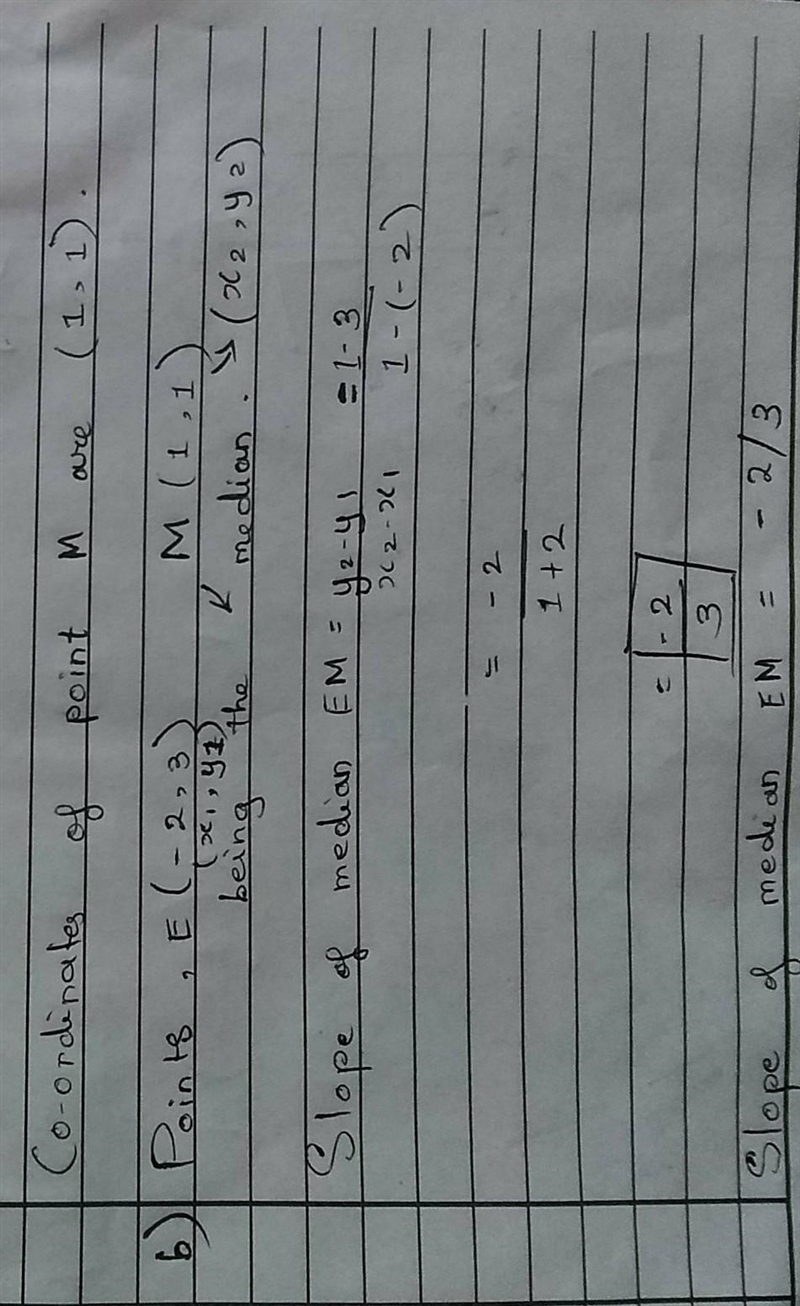 Co-ordinates of point M are (1,1).
b) Points, E(-2,3) M(1,1)
(x₁,y₁) being the ↙ median. ↘ (x₂,y₂)
Slope of median EM = y₂-y₁ = 1-3
x₂-x₁ 1-(-2)
= -2
1+2
= -2
3
Slope of median EM = -2/3